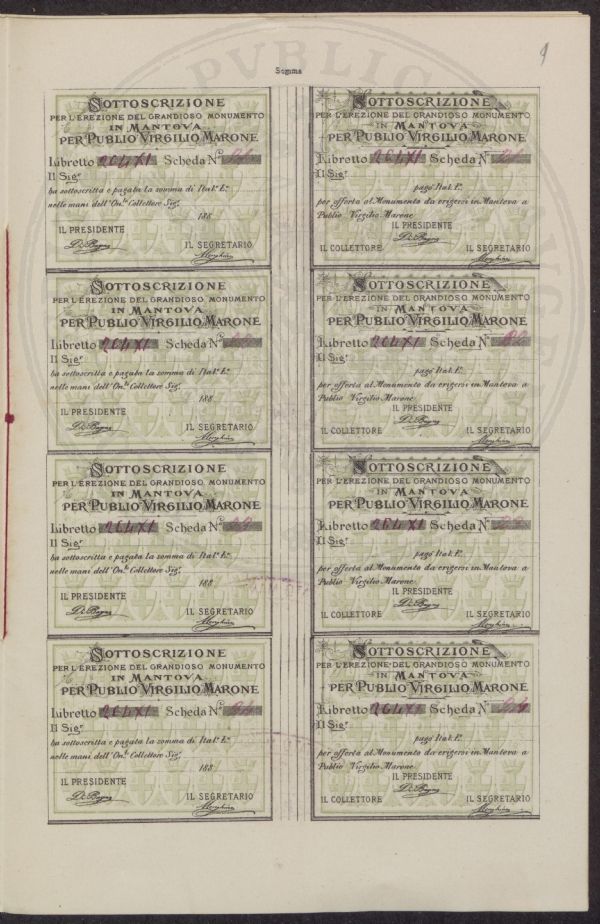 9
Somma
SOTTOSCRIZIONE
PER L'EREZIONE DEL GRANDIOSO MONUMENTO
IN MANTOVA
PER PUBLIO VIRGILIO MARONE
Libretto Scheda N.º
Il Sig.r
ha sottoscritta e pagata la somma di Ital.e L.e
nelle mani dell'On.le Collettore Sig.r
188
IL PRESIDENTE
IL SEGRETARIO
SOTTOSCRIZIONE
PER L'EREZIONE DEL GRANDIOSO MONUMENTO
IN MANTOVA
PER PUBLIO VIRGILIO MARONE
Libretto Scheda N.º
Il Sig.r
pagò Ital. L.e
per offerta al Monumento da erigersi in Mantova a
Publio Virgilio Marone
IL PRESIDENTE
IL COLLETTORE IL SEGRETARIO
SOTTOSCRIZIONE
PER L'EREZIONE DEL GRANDIOSO MONUMENTO
IN MANTOVA
PER PUBLIO VIRGILIO MARONE
Libretto Scheda N.º
Il Sig.r
ha sottoscritta e pagata la somma di Ital.e L.e
nelle mani dell'On.le Collettore Sig.r
188
IL PRESIDENTE
IL SEGRETARIO
SOTTOSCRIZIONE
PER L'EREZIONE DEL GRANDIOSO MONUMENTO
IN MANTOVA
PER PUBLIO VIRGILIO MARONE
Libretto Scheda N.º
Il Sig.r
pagò Ital. L.e
per offerta al Monumento da erigersi in Mantova a
Publio Virgilio Marone
IL PRESIDENTE
IL COLLETTORE IL SEGRETARIO
SOTTOSCRIZIONE
PER L'EREZIONE DEL GRANDIOSO MONUMENTO
IN MANTOVA
PER PUBLIO VIRGILIO MARONE
Libretto Scheda N.º
Il Sig.r
ha sottoscritta e pagata la somma di Ital.e L.e
nelle mani dell'On.le Collettore Sig.r
188
IL PRESIDENTE
IL SEGRETARIO
SOTTOSCRIZIONE
PER L'EREZIONE DEL GRANDIOSO MONUMENTO
IN MANTOVA
PER PUBLIO VIRGILIO MARONE
Libretto Scheda N.º
Il Sig.r
pagò Ital. L.e
per offerta al Monumento da erigersi in Mantova a
Publio Virgilio Marone
IL PRESIDENTE
IL COLLETTORE IL SEGRETARIO
SOTTOSCRIZIONE
PER L'EREZIONE DEL GRANDIOSO MONUMENTO
IN MANTOVA
PER PUBLIO VIRGILIO MARONE
Libretto Scheda N.º
Il Sig.r
ha sottoscritta e pagata la somma di Ital.e L.e
nelle mani dell'On.le Collettore Sig.r
188
IL PRESIDENTE
IL SEGRETARIO
SOTTOSCRIZIONE
PER L'EREZIONE DEL GRANDIOSO MONUMENTO
IN MANTOVA
PER PUBLIO VIRGILIO MARONE
Libretto Scheda N.º
Il Sig.r
pagò Ital. L.e
per offerta al Monumento da erigersi in Mantova a
Publio Virgilio Marone
IL PRESIDENTE
IL COLLETTORE IL SEGRETARIO